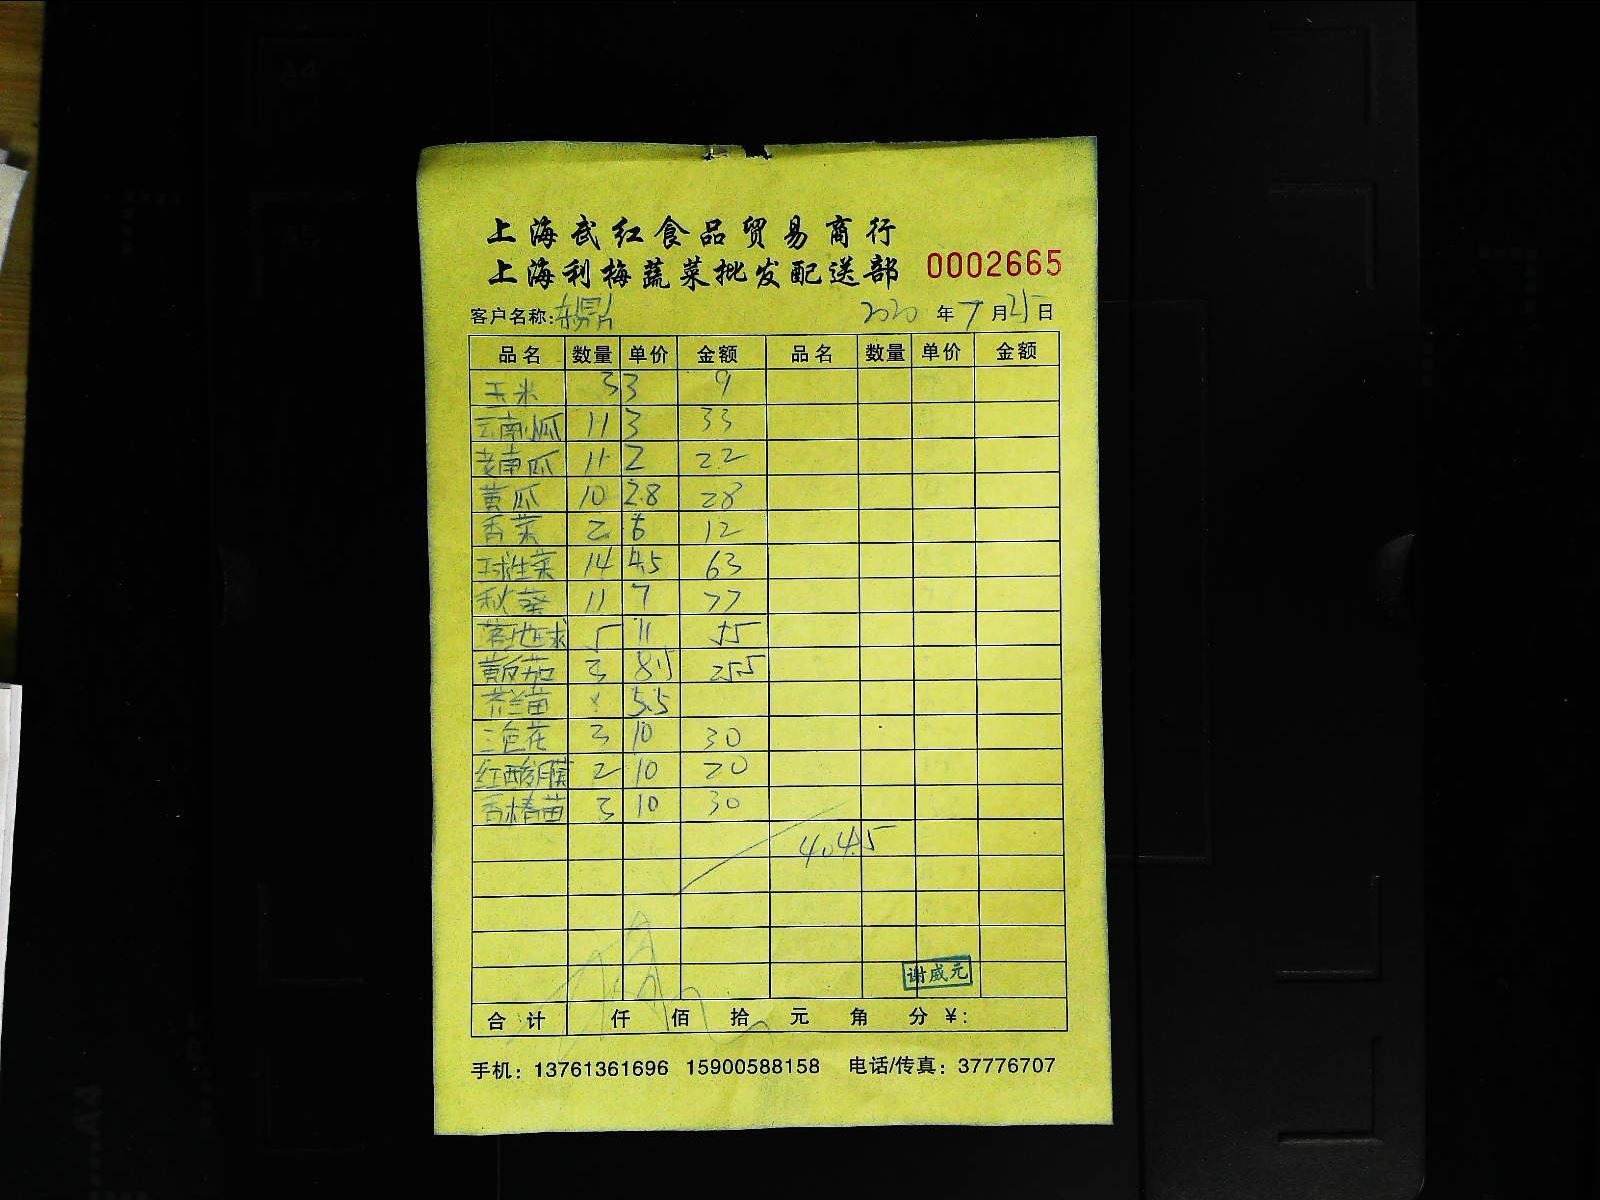 上海武红食品贸易商行
上海利梅蔬菜批发配送部 0002665
客户名称: 2020 年 7 月 25 日
品名 数量 单价 金额 品名 数量 单价 金额
玉米 3 3 9
云南小瓜 11 3 33
老南瓜 11 2 22
黄瓜 10 2.8 28
香菜 2 6 12
球生菜 14 4.5 63
秋葵 11 7 77
5 11 55
黄番茄 3 8.5 25.5
芥兰苗 5.5
三色花 3 10 30
红酸膜 2 10 20
香椿苗 3 10 30
404.5
谢威元
合计 仟 佰 拾 元 角 分 ¥:
手机: 13761361696 15900588158 电话/传真: 37776707